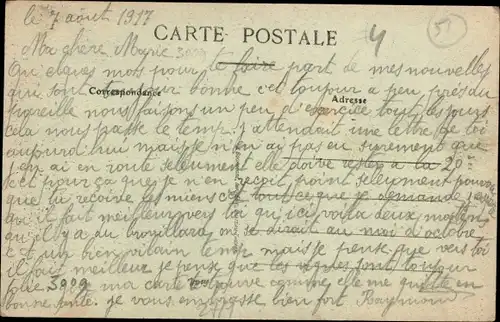 le 7 août 1917
CARTE POSTALE
4
51
Ma chère Marie
Quelques mots pour te faire part de mes nouvelles
qui sont bonne c'et toujour a peu près du
Correspondance
Adresse
pareille nous faisons un peu d'exercice tout les jours
cela nous passe le temp. j'attendait une lettre de toi
aujourd'hui mais je n'en ai pas eu surement que
j'en ai en route seleument elle doive rester a la 20
et pour ça que je n'en reçoit point seleument pourvu
que tu reçoive les miens c'et tout ce que je demande
il fait meilleur vers toi qu'ici voila deux
qu'il y a du brouillard on se dirait au moi d'octobre
c'et un bien vilain temp mais je pense que vers toi
il fait meilleur je pense que les vignes sont toujour
jolie 5909 ma carte te trouve comme elle me quitte en
bonne santé. je vous embrasse bien fort Raymond